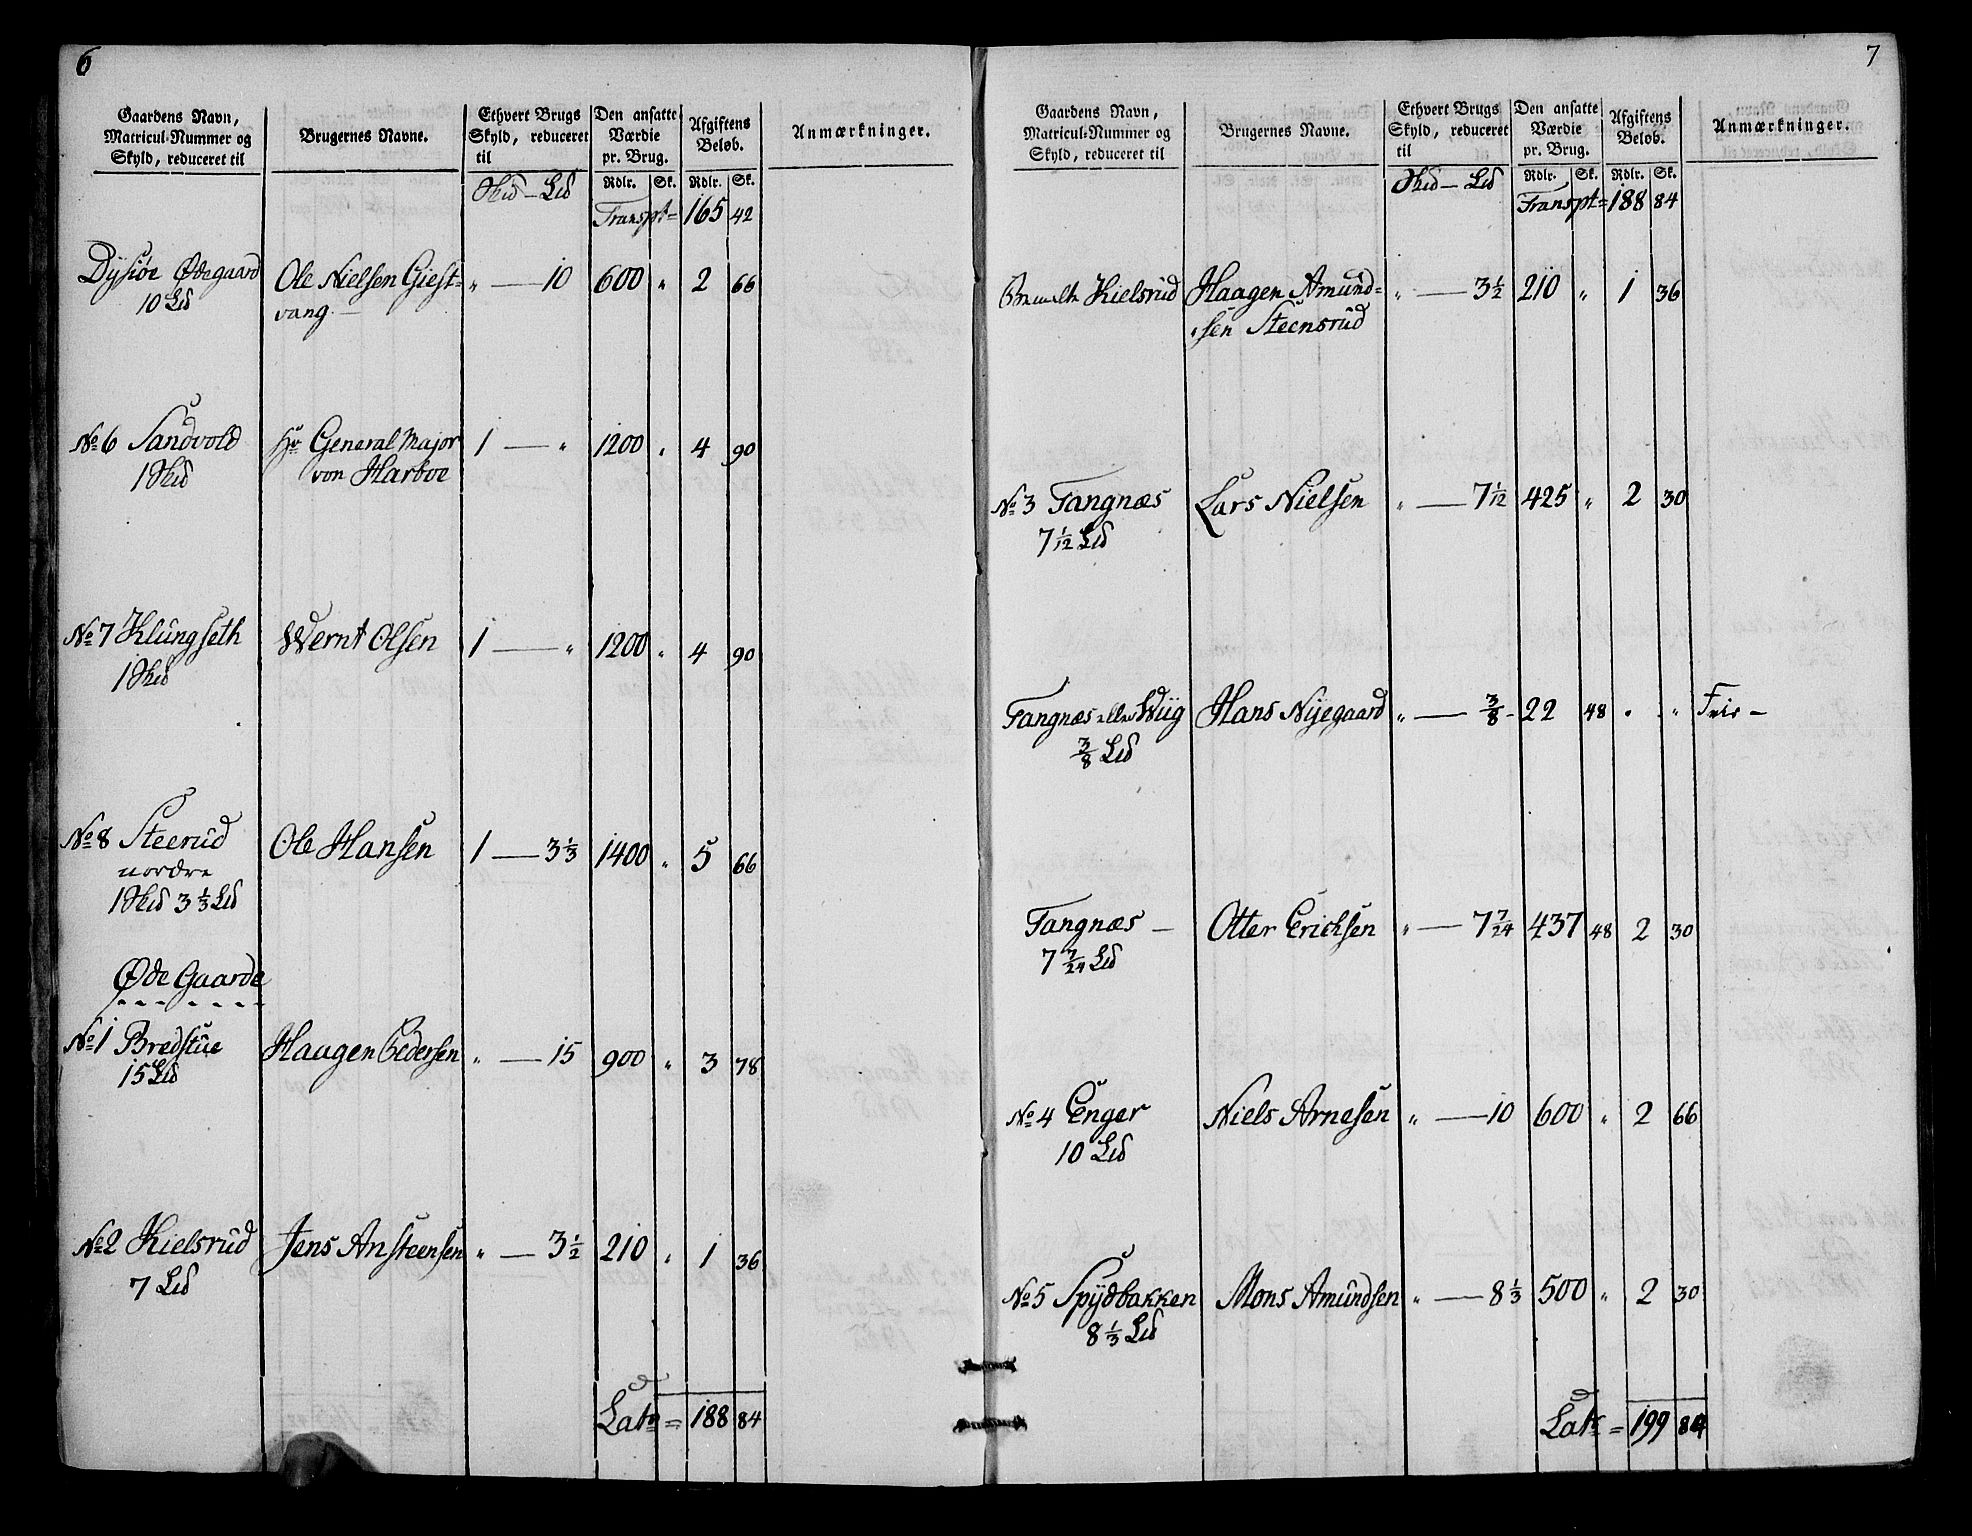 6
Gaardens Navn,
Matricul-Nummer og
Skyld, reduceret til
Brugernes Navne.
Ethvert Brugs
Skyld, reduceret
til
Den ansatte
Værdie
pr. Brug.
Afgiftens
Beløb.
Anmærkninger.
Hud — Ld
Rdlr. Sk. Rdlr. Sk.
Transpt = 165 42
Dysiøe Ødegaard Ole Nielsen Giest- „ — 10 600 „ 2 66
10 Ld vang
No 6 Sandvold Hr General Major 1 — „ 1200 „ 4 90
1 Hud von Harboe
No 7 Klungseth Wernt Olsen 1 — „ 1200 „ 4 90
1 Hud
No 8 Steerud Ole Hansen 1 — 3 1/3 1400 „ 5 66
nordre
1 Hud 3 1/3 Ld
Øde Gaarde
No 1 Bredstue Haagen Pedersen „ — 15 900 „ 3 78
15 Ld
No 2 Kielsrud Jens Ansteensen „ — 3 1/2 210 „ 1 36
7 Ld
Lats = 188 84
7
Gaardens Navn,
Matricul-Nummer og
Skyld, reduceret til
Brugernes Navne.
Ethvert Brugs
Skyld, reduceret
til
Den ansatte
Værdie
pr. Brug.
Afgiftens
Beløb.
Anmærkninger.
Hud — Ld
Rdlr. Sk. Rdlr. Sk.
Transpt = 188 84
Kielsrud Haagen Amund- „ — 3 1/2 210 „ 1 36
sen Steensrud
No 3 Tangnæs Lars Nielsen „ — 7 1/12 425 „ 2 30
7 1/12 Ld
Tangnæs eller Wiig Hans Nyegaard „ — 3/8 - 22 48 „ „ Frie —
3/8 Ld
Tangnæs — Otter Erichsen „ — 7 7/24 437 48 2 30
7 7/24 Ld
No 4 Enger Niels Arnesen „ — 10 600 „ 2 66
10 Ld
No 5 Spydbakken Mons Amundsen „ — 8 1/3 500 „ 2 30
8 1/3 Ld
Lats = 199 84